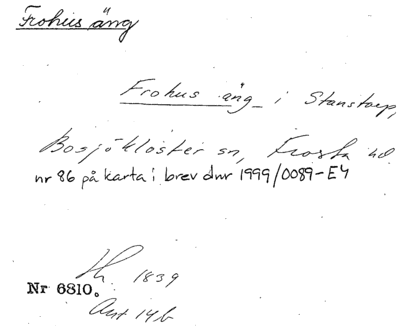 Frohus äng
Frohus äng i Stanstorp,
Bosjökloster sn, Frosta hd
nr 86 på karta i brev dnr 1999/0089-E4
1839
Nr 6810.
Akt 146